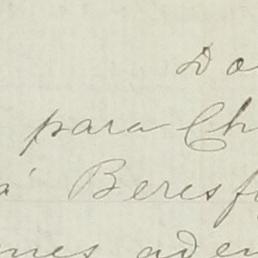 Do
para Ch
a' Beresf
nes aden